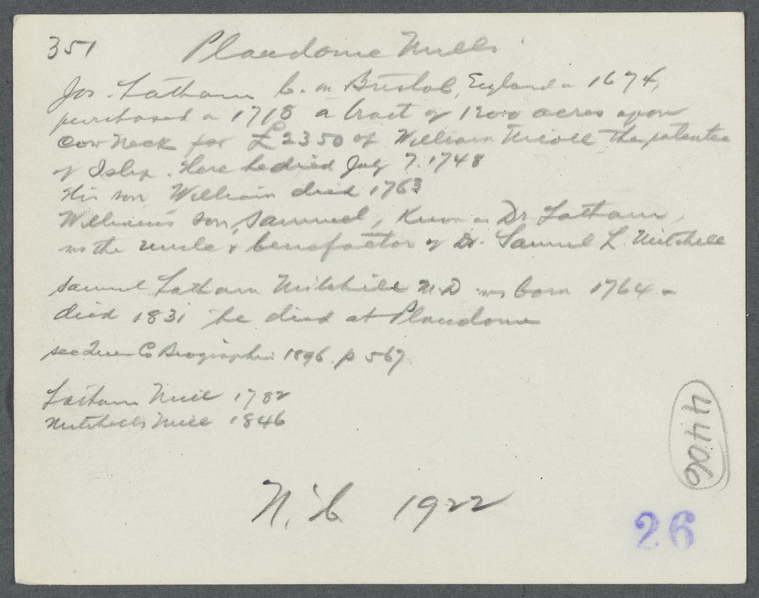 351 Plandome Mills
Jos. Latham b. in Bristol, England in 1674,
purchased in 1718 a tract of 1200 acres upon
Cow Neck for £2350 of William Nicoll the patentee
of Islip. Here he died July 7. 1748
His son William died 1763
William's son, Samuel, known as Dr. Latham,
was the uncle & benefactor of Dr. Samuel L. Mitchell
Samuel Latham Mitchill M.D was born 1764 -
died 1831 he died at Plandome
see Queens Co Biographies 1896 p 567
Latham Mill 1782
Mitchells Mill 1846
4406
1922
26